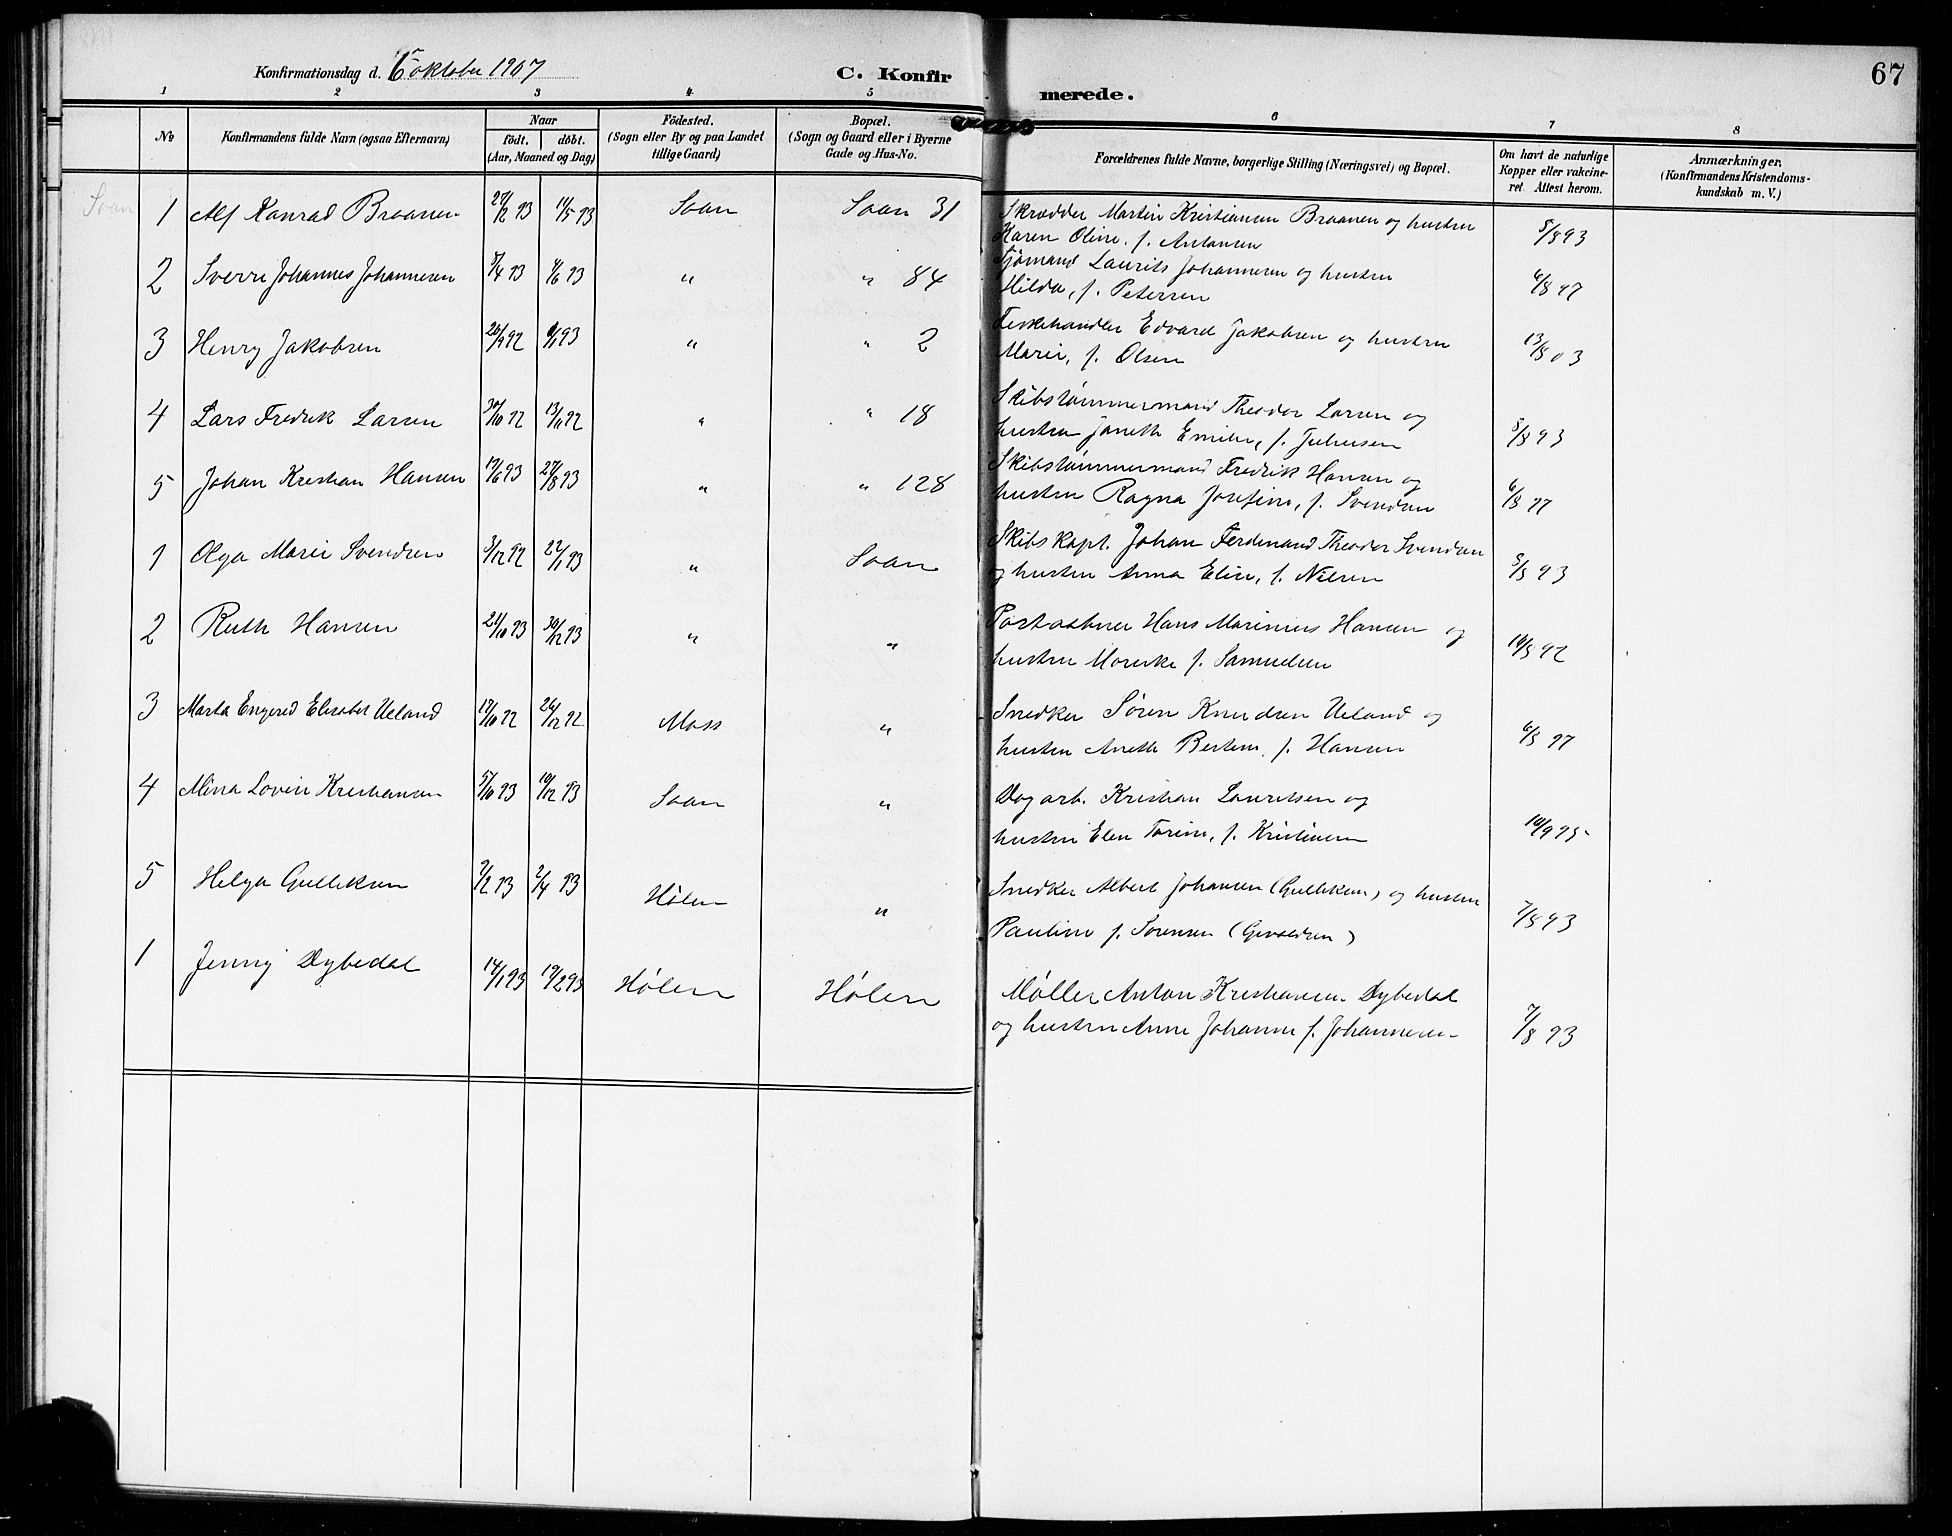 67
Konfirmationsdag d. 6 oktober 1907
C. Konfir
merede.
1 2 3 4 5 6 7 8
No
Konfirmandens fulde Navn (ogsaa Efternavn)
Naar
født. døbt.
(Aar, Maaned og Dag)
Fødested.
(Sogn eller By og paa Landet
tillige Gaard)
Bopæl.
(Sogn og Gaard eller i Byerne
Gade og Hus-No.
Forældrenes fulde Navne, borgerlige Stilling (Næringsvei) og Bopæl.
Om havt de naturlige
Kopper eller vakcine-
ret. Attest herom.
Anmærkninger,
(Konfirmandens Kristendoms-
kundskab m. V.)
Soan
1 Alf Konrad Braanen 27/12 93 14/5 93 Soan Soan 31 Skrædder Martin Kristiansen Braanen og hustru
Karen Oline, f. Antonsen 8/8 93
2 Sverre Johannes Johannesen 7/4 93 4/6 93 " " 84 Sjømand Laurits Johannesen og hustru
Hilda, f. Petersen 6/8 97
3 Henry Jakobsen 26/9 92 6/1 93 " " 2 Fiskehandler Edvard Jakobsen og hustru
Marie, f. Olsen 13/8 03
4 Lars Fredrik Larsen 30/10 92 13/11 92 " " 18 Skibstømmermand Theodor Larsen og
hustru Janeth Emilie, f. Juliusen 8/8 93
5 Johan Kristian Hansen 19/6 93 27/8 93 " " 128 Skibstømmermand Fredrik Hansen og
hustru Ragna Josefine, f. Svendsen 6/8 97
1 Olga Marie Svendsen 3/12 92 22/1 93 " Soan Skibskapt. Johan Ferdinand Theodor Svendsen
og hustru Anna Eline, f. Nielsen 8/8 93
2 Ruth Hansen 24/10 93 30/12 93 " " Postaabner Hans Marinius Hansen og
hustru Mareske f. Samuelsen 19/8 92
3 Marta Engered Elisabet Ueland 17/10 92 26/12 92 Moss " Snedker Søren Knudsen Ueland og
hustru Anette Bertine, f. Hansen 6/8 97
4 Mina Lovise Kristiansen 5/10 93 10/12 93 Soan " Dagarb. Kristian Lauritsen og
hustru Elen Torine, f. Kristiansen 10/9 95
5 Helga Gulliksen 7/2 93 2/4 93 Hølen " Snedker Albert Johansen (Gulliksen) og hustru
Pauline f. Sørensen 7/8 93
1 Jenny Dybedal 14/1 93 19/2 93 Hølen Hølen Møller Anton Kristiansen Dybedal
og hustru Anne Johanne f. Johannesen 7/8 93